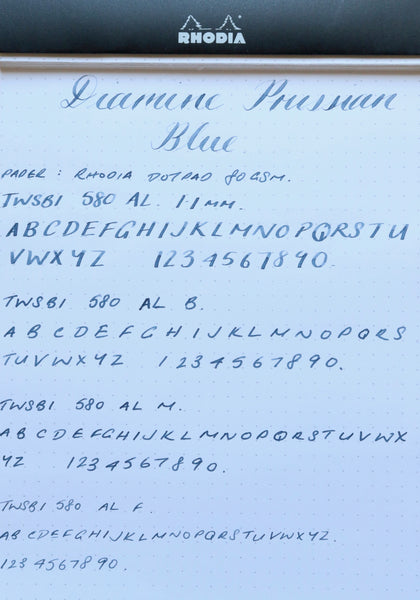 RHODIA
Diamine Prussian
Blue
PAPER: RHODIA DOTPAD 80GSM.
TWSBI 580 AL. 1.1MM.
ABCDEFGHIJKLMNOPQRSTU
VWXYZ 1234567890.
TWSBI 580 AL B.
ABCDEFGHIJKLMNOPQRS
TUVWXYZ 1234567890.
TWSBI 580 AL M.
ABCDEFGHIJKLMNOPQRSTUVWX
YZ 1234567890.
TWSBI 580 AL F.
ABCDEFGHIJKLMNOPQRSTUVWXYZ.
1234567890.